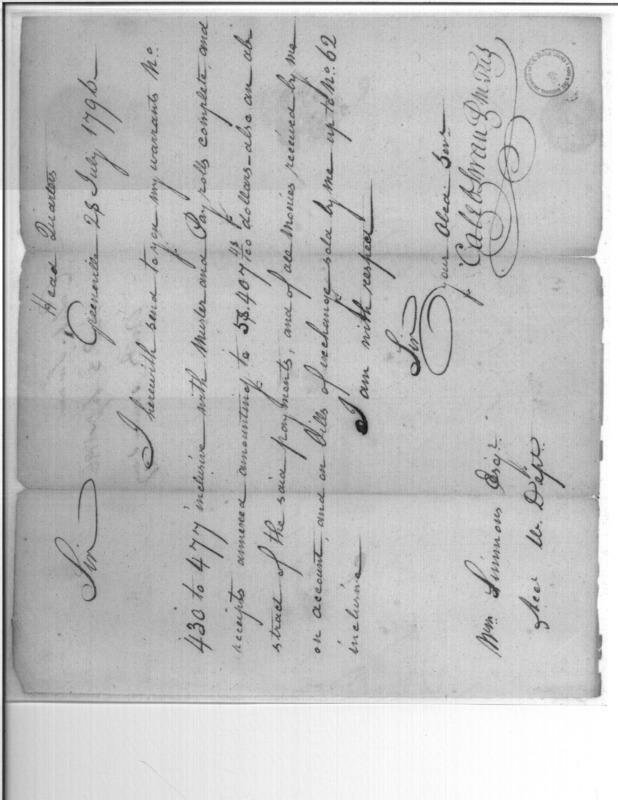 Head Quarters
Greenville 28 July 1795
Sir
I herewith send to you my warrants No.
430 to 477 inclusive with Muster and Pay rolls complete, and
receipts annexed amounting to 58.407 /100 dollars - also an ab
stract of the said payments, and of all monies received by me
on account, and on Bills of exchange sold by me up to No. 62
inclusive
I am with respect
Sir
your Obed. Serv.
Caleb Swan P M T US
Wm Simmons Esqr.
Acct W. Dept.